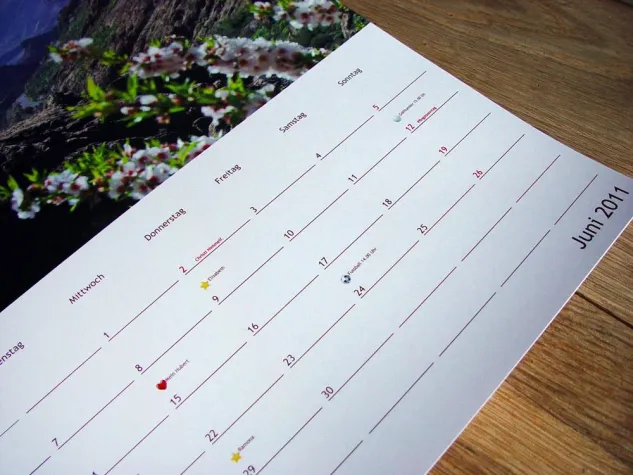 Juni 2011
enstag Mittwoch Donnerstag Freitag Samstag Sonntag
1 2 3 4 5
Elisabeth
7 8 9 10 11 12
Hubert
15 16 17 18 19
Fussball 14.00 Uhr
22 23 24 25 26
Ramona
29 30